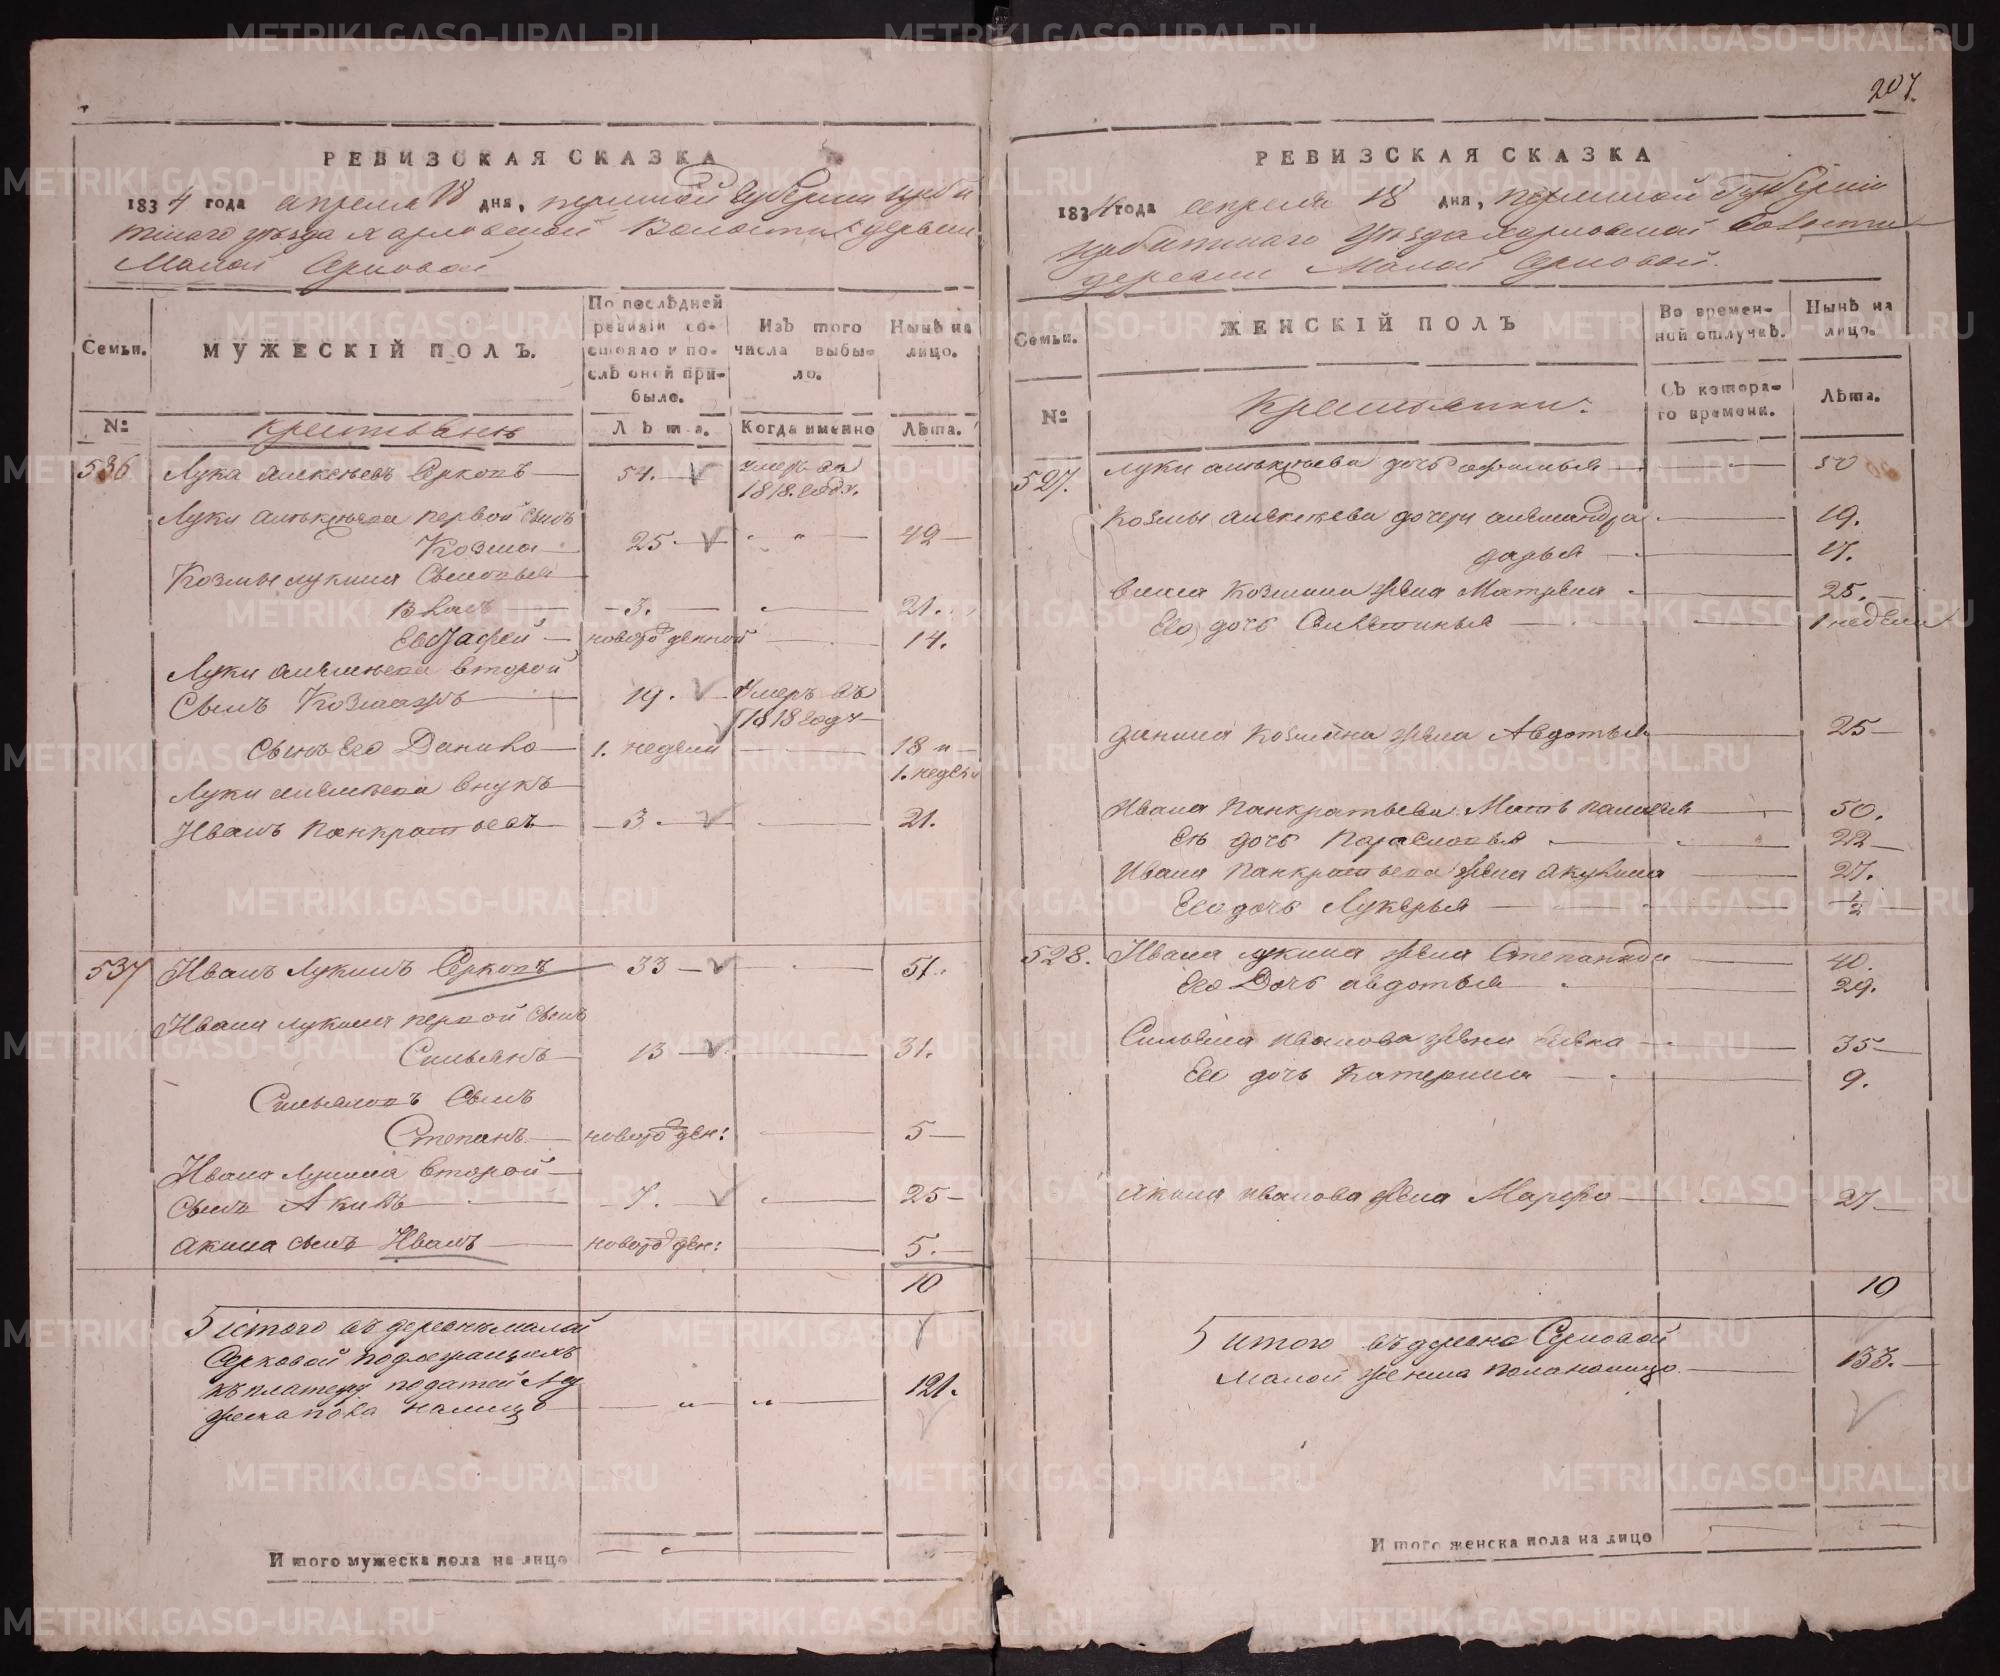 207.
РЕВИЗСКАЯ СКАЗКА
1834 года апреля 18 дня, пермской губернии ирби
тскаго уѣзда харловской Волости деревни
Малой Серковой
Семьи.
МУЖЕСКІЙ ПОЛЪ.
По послѣдней ревизіи состояло и послѣ оной прибыло.
Изъ того числа выбыло.
Нынѣ на лицо.
№
Крестьянѣ
Лѣта.
Когда именно
Лѣта.
536 Лука алексѣевъ Серковъ 54. умеръ въ 1818. году.
Луки алексѣева первой сынъ
Козма 25. " 42
Козмы лукина Сыновья
Иванъ 3. 21.
Евграфей новорожденной 14.
Луки алексѣева второй
Сынъ 19. умеръ въ 1818 году
Сынъ Его Данило 1. недели 18 и 1. недели
Луки алексѣева внукъ
Иванъ Панкратьевъ 3 21.
537 Иванъ Лукинъ Серковъ 33 51.
Ивана лукина первой сынъ
Сильянъ 13 31.
Сильяновъ Сынъ
Степанъ новорожден: 5
Ивана Лукина второй
Сынъ Акимъ 7. 25
Акима сынъ Иванъ новорожден: 5.
10
итого въ деревнѣ малой
Серковой подлежащихъ
къ платежу податей му
жеска пола налицо " " 121.
И того мужеска пола на лицо
РЕВИЗСКАЯ СКАЗКА
1834 года апреля 18 дня, пермской Губерніи
ирбитскаго Уѣзда харловской волости
деревни Малой Серковой.
Семьи.
ЖЕНСКІЙ ПОЛЪ
Во временной отлучкѣ.
Нынѣ на лицо.
№
Крестьянки.
Съ котораго времени.
Лѣта.
527. Луки алексѣева дочь 50
Козмы алексѣева дочери 19.
дарья 17.
Козмина жена Матрена 25.
Его дочь 1 недели
данила Козмина жена Авдотья 25
Ивана Панкратьева Мать 50.
Еѣ дочь Парасковья 22
Ивана Панкратьева жена акулина 27.
Его дочь Лукерья ½
528. Ивана лукина жена Степанида 40.
Его Дочь авдотья 29.
Сильяна иванова жена 35
Его дочь Катерина 9.
Акима иванова жена Марфа 27
10
итого въ деревнѣ Серковой
Малой женска пола налицо 133.
И того женска пола на лицо
METRIKI.GASO-URAL.RU